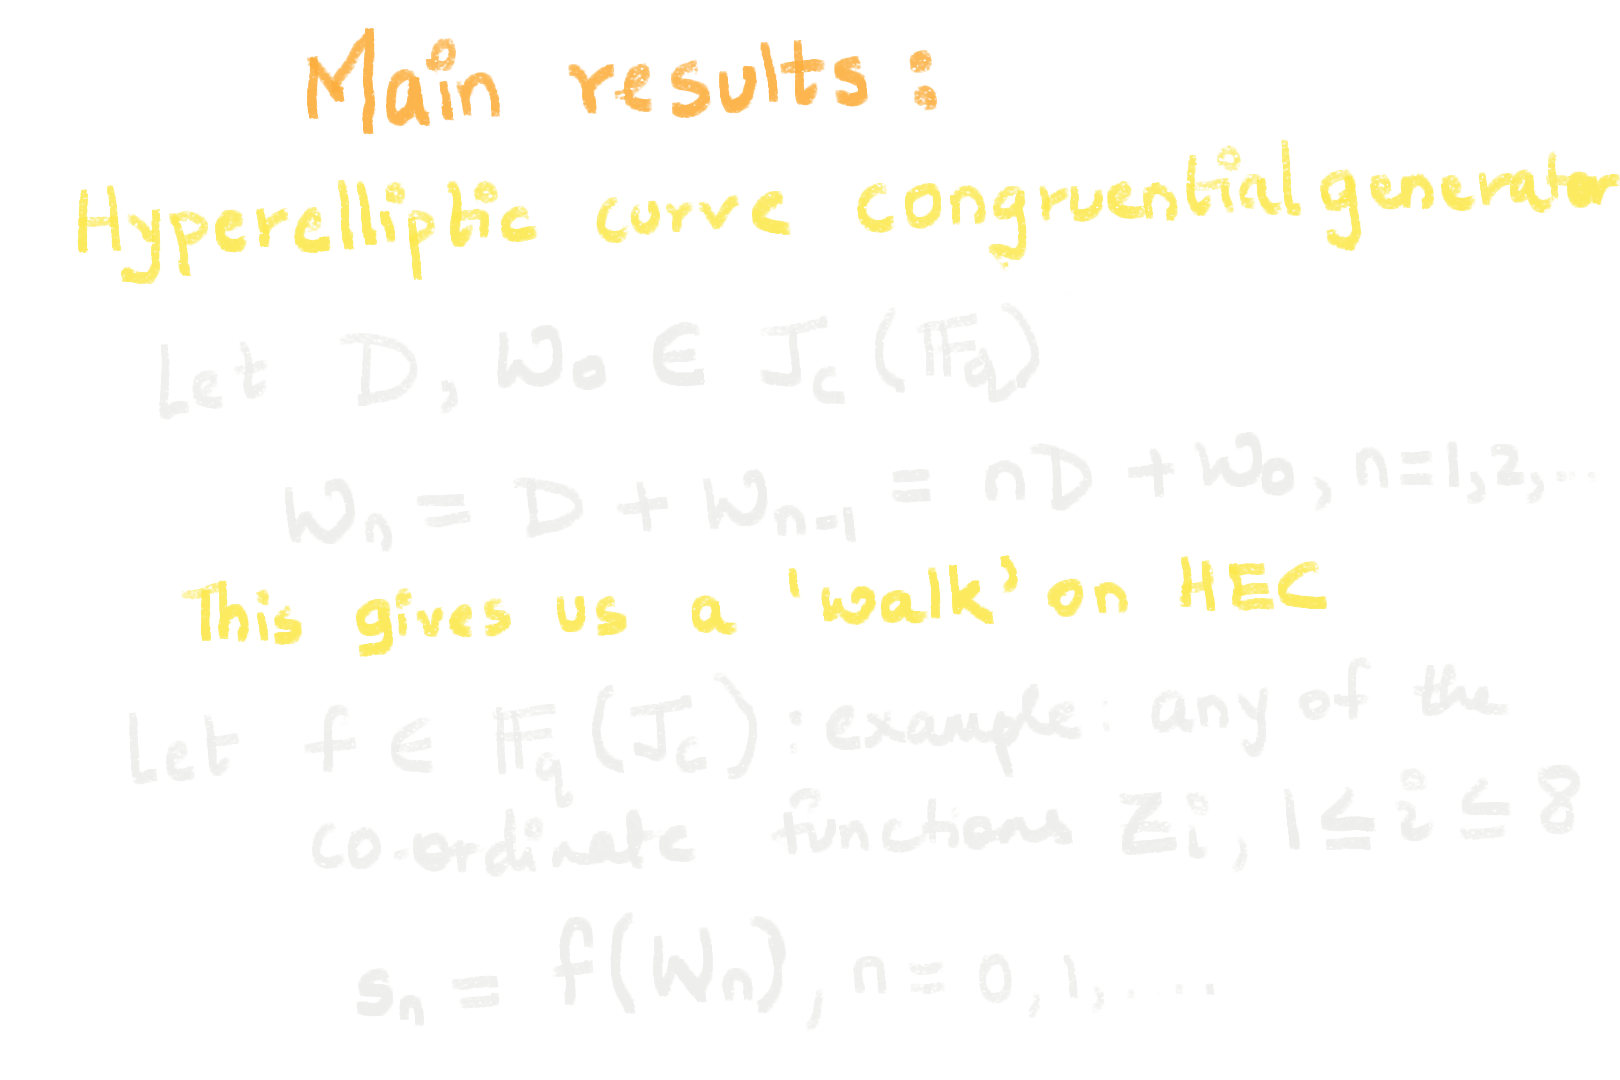 Main results :
Hyperelliptic curve congruential generator
Let D, W₀ ∈ J_C (𝔽_q)
W_n = D + W_{n-1} = nD + W₀, n=1,2,...
This gives us a 'walk' on HEC
Let f ∈ 𝔽_q (J_C) : example : any of the
co-ordinate functions Z_i, 1 ≤ i ≤ 8
s_n = f(W_n), n = 0, 1, ....